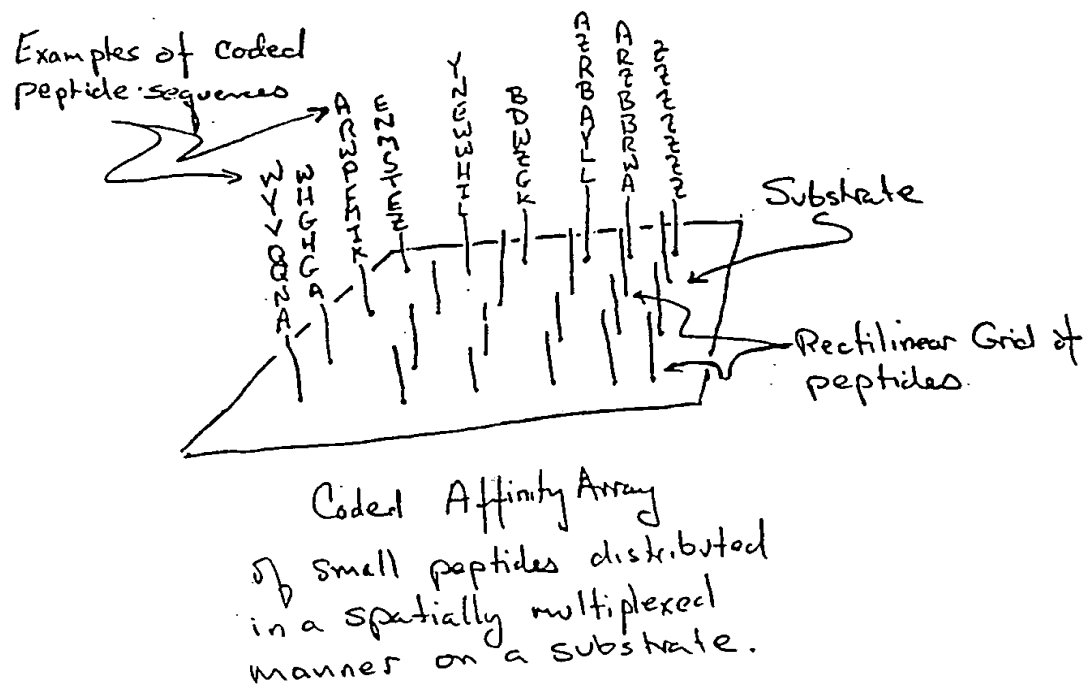 Examples of coded
peptide sequences
WYVQQNA
WHGHGA
ARWDEHIK
YNEWWHIL
AZRBAYLL
ARZBBRWA
Substrate
Rectilinear Grid of
peptides.
Coded Affinity Array
of small peptides distributed
in a spatially multiplexed
manner on a substrate.